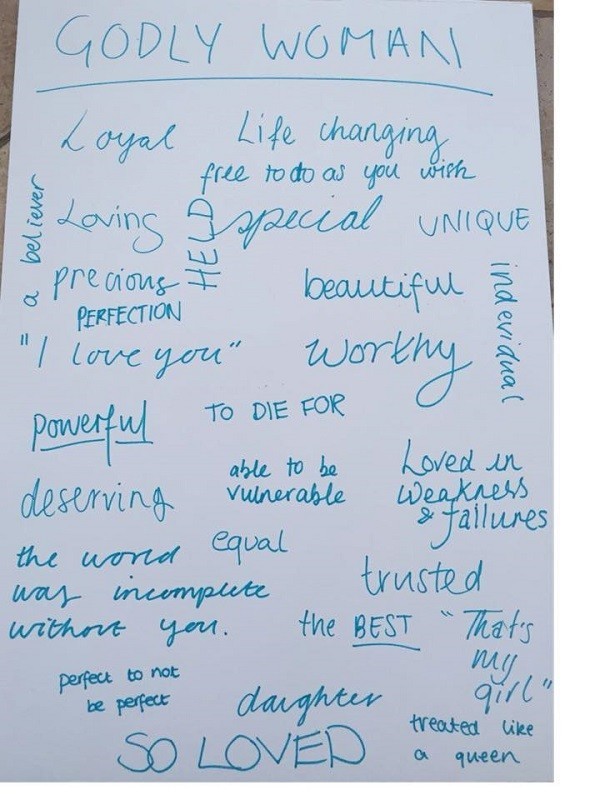 GODLY WOMAN
Loyal
Life changing
free to do as you wish
a believer
Loving
HELD
special
UNIQUE
precious
PERFECTION
beautiful
indevidual
"I love you"
Worthy
powerful
TO DIE FOR
deserving
able to be
vulnerable
Loved in
weakness
& failures
equal
the world
was incomplete
without you.
trusted
the BEST
"That's
my
girl"
perfect to not
be perfect
daughter
treated like
a queen
SO LOVED